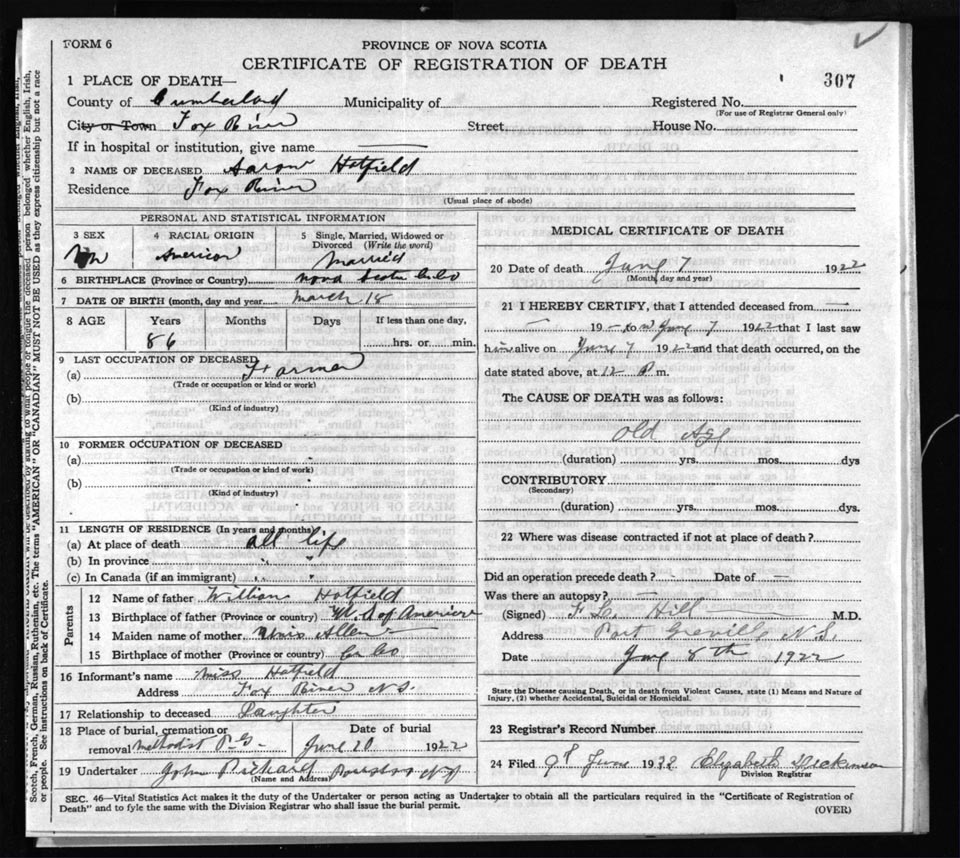 FORM 6
PROVINCE OF NOVA SCOTIA
CERTIFICATE OF REGISTRATION OF DEATH
307
1 PLACE OF DEATH—
County of Cumberland Municipality of Registered No.
(For use of Registrar General only)
City or Town Fox River Street House No.
If in hospital or institution, give name —
2 NAME OF DECEASED Aaron Hatfield
Residence Fox River
(Usual place of abode)
PERSONAL AND STATISTICAL INFORMATION
3 SEX
4 RACIAL ORIGIN
American
5 Single, Married, Widowed or Divorced (Write the word)
Married
6 BIRTHPLACE (Province or Country) Nova Scotia
7 DATE OF BIRTH (month, day and year) March 18
8 AGE Years Months Days If less than one day,
86 hrs. or min.
9 LAST OCCUPATION OF DECEASED
(a) Farmer
(Trade or occupation or kind or work)
(b)
(Kind of industry)
10 FORMER OCCUPATION OF DECEASED
(a)
(Trade or occupation or kind of work)
(b)
(Kind of industry)
11 LENGTH OF RESIDENCE (In years and months)
(a) At place of death all life
(b) In province " "
(c) In Canada (if an immigrant) " "
Parents
12 Name of father William Hatfield
13 Birthplace of father (Province or country) U.S of America
14 Maiden name of mother Allen
15 Birthplace of mother (Province or country)
16 Informant's name Miss Hatfield
Address Fox River N.S.
17 Relationship to deceased Daughter
18 Place of burial, cremation or removal Methodist
Date of burial
June 1922
19 Undertaker John Pickard N.S
(Name and Address)
MEDICAL CERTIFICATE OF DEATH
20 Date of death June 7 1922
(Month, day and year)
21 I HEREBY CERTIFY, that I attended deceased from —
— 19 — to June 7 1922 that I last saw
him alive on June 7 1922 and that death occurred, on the
date stated above, at 12 P m.
The CAUSE OF DEATH was as follows:
Old Age
(duration) yrs. mos. dys
CONTRIBUTORY
(Secondary)
(duration) yrs. mos. dys.
22 Where was disease contracted if not at place of death?
Did an operation precede death? - Date of —
Was there an autopsy? —
(Signed) Hill M.D.
Address Port Greville N.S.
Date June 8th 1922
State the Disease causing Death, or in death from Violent Causes, state (1) Means and Nature of Injury, (2) whether Accidental, Suicidal or Homicidal.
23 Registrar's Record Number
24 Filed June Elizabeth Dickinson
Division Registrar
SEC. 46—Vital Statistics Act makes it the duty of the Undertaker or person acting as Undertaker to obtain all the particulars required in the "Certificate of Registration of
Death" and to fyle the same with the Division Registrar who shall issue the burial permit.
(OVER)
belonged whether English, Irish,
The terms "AMERICAN" OR "CANADIAN" MUST NOT BE USED as they express citizenship but not a race
Scotch, French, German, Russian, Ruthenian, etc.
or people. See instructions on back of Certificate.